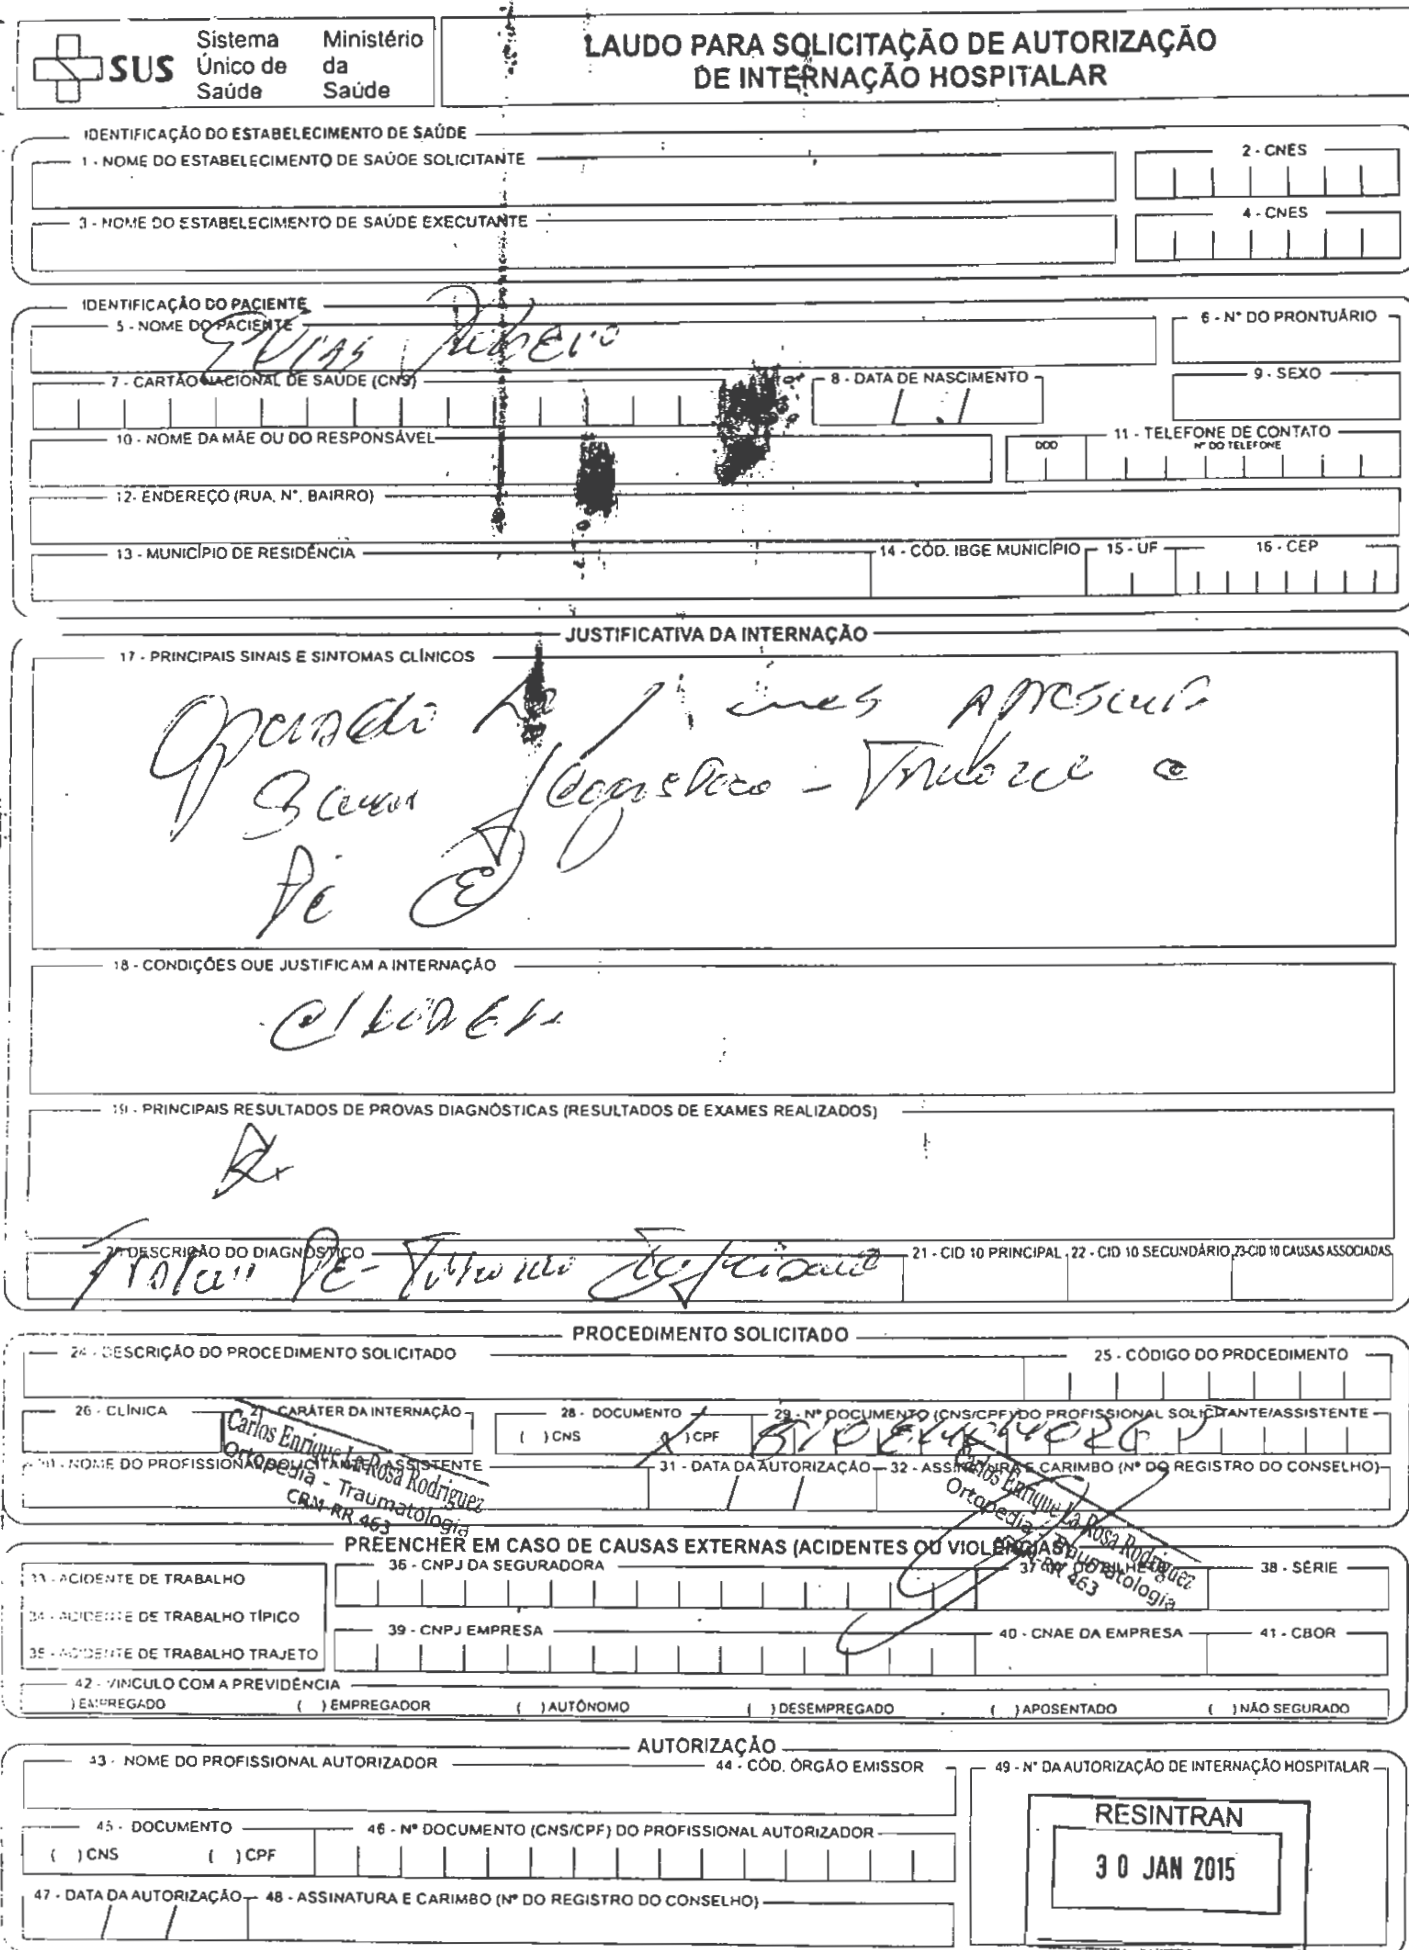 SUS
Sistema Único de Saúde
Ministério da Saúde
LAUDO PARA SOLICITAÇÃO DE AUTORIZAÇÃO
DE INTERNAÇÃO HOSPITALAR
IDENTIFICAÇÃO DO ESTABELECIMENTO DE SAÚDE
1 - NOME DO ESTABELECIMENTO DE SAÚDE SOLICITANTE
2 - CNES
3 - NOME DO ESTABELECIMENTO DE SAÚDE EXECUTANTE
4 - CNES
IDENTIFICAÇÃO DO PACIENTE
5 - NOME DO PACIENTE
6 - N° DO PRONTUÁRIO
7 - CARTÃO NACIONAL DE SAÚDE (CNS)
8 - DATA DE NASCIMENTO
9 - SEXO
/ /
10 - NOME DA MÃE OU DO RESPONSÁVEL
11 - TELEFONE DE CONTATO
DDD
N° DO TELEFONE
12- ENDEREÇO (RUA, N°, BAIRRO)
13 - MUNICÍPIO DE RESIDÊNCIA
14 - CÓD. IBGE MUNICÍPIO
15 - UF
16 - CEP
JUSTIFICATIVA DA INTERNAÇÃO
17 - PRINCIPAIS SINAIS E SINTOMAS CLÍNICOS
Pé E
18 - CONDIÇÕES QUE JUSTIFICAM A INTERNAÇÃO
19 - PRINCIPAIS RESULTADOS DE PROVAS DIAGNÓSTICAS (RESULTADOS DE EXAMES REALIZADOS)
Rx
20 - DESCRIÇÃO DO DIAGNÓSTICO
21 - CID 10 PRINCIPAL
22 - CID 10 SECUNDÁRIO
23-CID 10 CAUSAS ASSOCIADAS
PROCEDIMENTO SOLICITADO
24 - DESCRIÇÃO DO PROCEDIMENTO SOLICITADO
25 - CÓDIGO DO PROCEDIMENTO
26 - CLÍNICA
27 CARÁTER DA INTERNAÇÃO
28 - DOCUMENTO
29 - N° DOCUMENTO (CNS/CPF) DO PROFISSIONAL SOLICITANTE/ASSISTENTE
( ) CNS
(X) CPF
Carlos Enrique La Rosa Rodriguez
Ortopedia - Traumatologia
CRM-RR 463
30 - NOME DO PROFISSIONAL SOLICITANTE/ASSISTENTE
31 - DATA DA AUTORIZAÇÃO
32 - ASSINATURA E CARIMBO (N° DO REGISTRO DO CONSELHO)
/ /
Carlos Enrique La Rosa Rodriguez
Ortopedia - Traumatologia
CRM-RR 463
PREENCHER EM CASO DE CAUSAS EXTERNAS (ACIDENTES OU VIOLÊNCIAS)
33 - ACIDENTE DE TRABALHO
36 - CNPJ DA SEGURADORA
37 - N° DO BILHETE
38 - SÉRIE
34 - ACIDENTE DE TRABALHO TÍPICO
39 - CNPJ EMPRESA
40 - CNAE DA EMPRESA
41 - CBOR
35 - ACIDENTE DE TRABALHO TRAJETO
42 - VINCULO COM A PREVIDÊNCIA
) EMPREGADO
( ) EMPREGADOR
( ) AUTÔNOMO
( ) DESEMPREGADO
( ) APOSENTADO
( ) NÃO SEGURADO
AUTORIZAÇÃO
43 - NOME DO PROFISSIONAL AUTORIZADOR
44 - CÓD. ÓRGÃO EMISSOR
49 - N° DA AUTORIZAÇÃO DE INTERNAÇÃO HOSPITALAR
45 - DOCUMENTO
46 - N° DOCUMENTO (CNS/CPF) DO PROFISSIONAL AUTORIZADOR
( ) CNS
( ) CPF
RESINTRAN
30 JAN 2015
47 - DATA DA AUTORIZAÇÃO
48 - ASSINATURA E CARIMBO (N° DO REGISTRO DO CONSELHO)
/ /